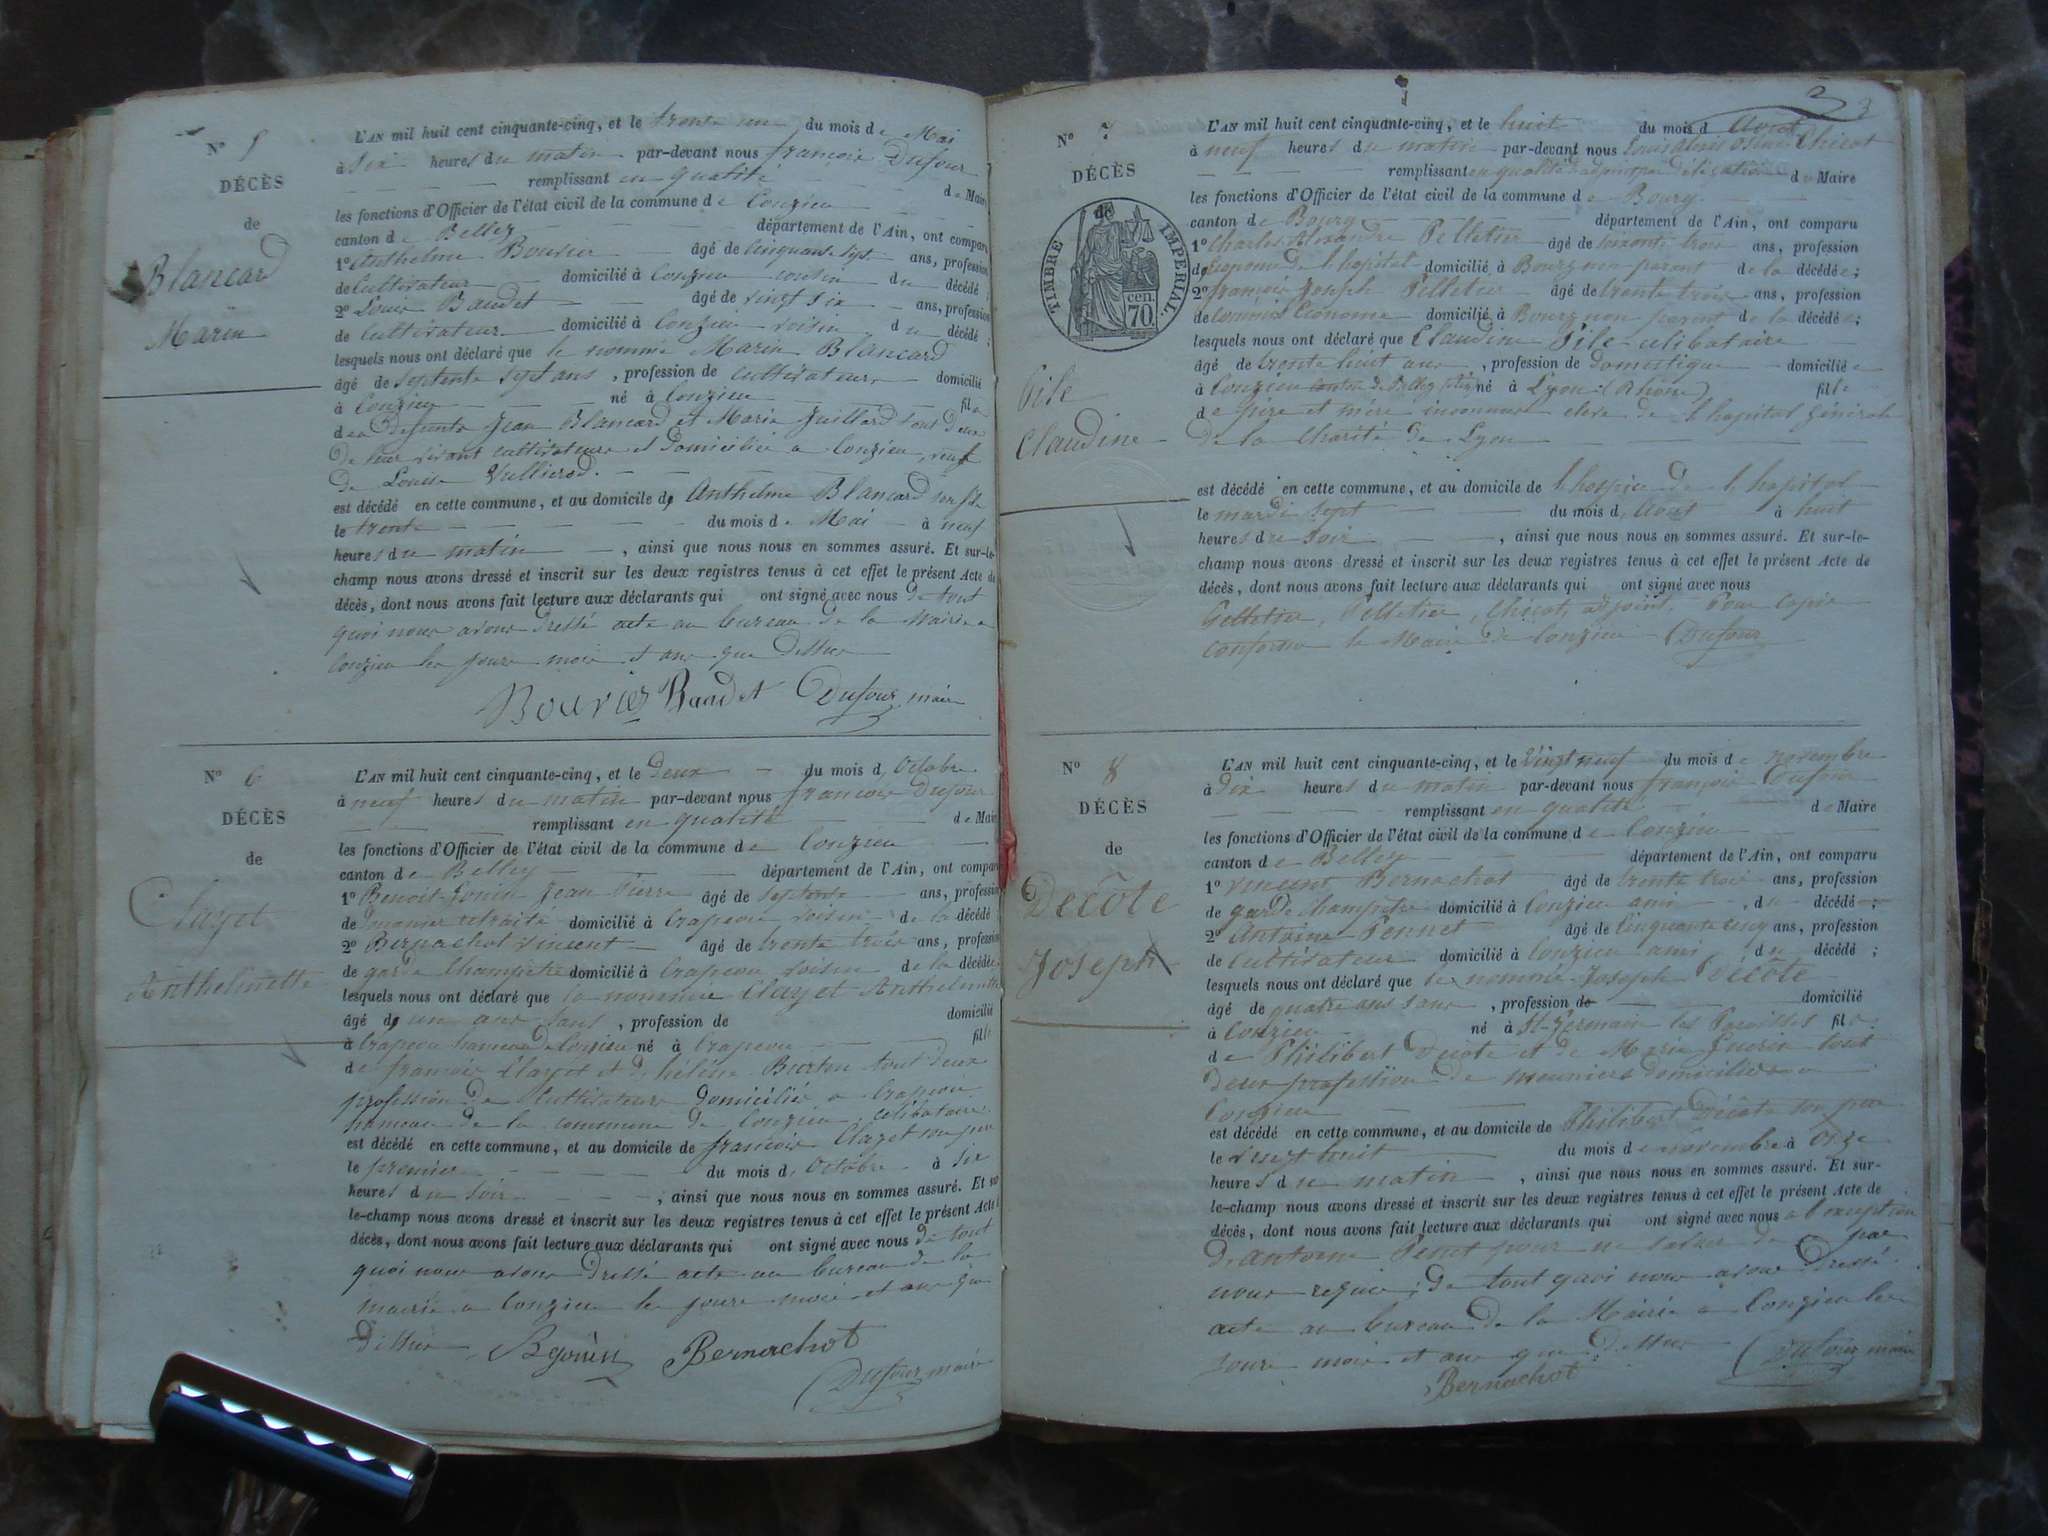 N° 5
DÉCÈS
de
Blancard
Marin
L'AN mil huit cent cinquante-cinq, et le trente un du mois de Mai
à six heures du matin par-devant nous françois Dufour
remplissant en qualité de Maire
les fonctions d'Officier de l'état civil de la commune de Conzieu
canton de Belley département de l'Ain, ont comparu
1° Anthelme Bouvier âgé de cinquante sept ans, profession
de Cultivateur domicilié à Conzieu cousin du décédé ;
2° Louis Baudet âgé de vingt six ans, profession
de Cultivateur domicilié à Conzieu voisin du décédé ;
lesquels nous ont déclaré que le nommé Marin Blancard
âgé de septente sept ans, profession de Cultivateur domicilié
à Conzieu né à Conzieu fils
des defunts Jean Blancard et Marie Juillard tout deux
de leur vivant cultivateurs et domiciliés a Conzieu, veuf
de Louise Vullierod.
est décédé en cette commune, et au domicile d, Anthelme Blancard son fils
le trente du mois de Mai à neuf
heures du matin, ainsi que nous nous en sommes assuré. Et sur-le-
champ nous avons dressé et inscrit sur les deux registres tenus à cet effet le présent Acte de
décès, dont nous avons fait lecture aux déclarants qui ont signé avec nous de tout
quoi nous avons dressé acte au bureau de la Mairie a
Conzieu les jours mois et ans que dessus
Bouvier Baudet Dufour maire
N° 6
DÉCÈS
de
Clayet
Anthelmette
L'AN mil huit cent cinquante-cinq, et le deux du mois d, Octobre
à neuf heures du matin par-devant nous françois Dufour
remplissant en qualité de Maire
les fonctions d'Officier de l'état civil de la commune de Conzieu
canton de Belley département de l'Ain, ont comparu
1° Benoit-Gonin Jean Pierre âgé de septente ans, profession
de douanier retraité domicilié à Crapeou voisin de la décédé
2° Bernachot Vincent âgé de trente trois ans, profession
de garde Champetre domicilié à Crapeou voisin de la décédée
lesquels nous ont déclaré que la nommée Clayet Anthelmette
âgé d, un ans, profession de domicilié
à Crapeou hameau de Conzieu né à Crapeou fille
de françois Clayet et d, hélène tout deux
profession de Cultivateurs domiciliés a Crapeou
hameau de la commune de Conzieu, célibataire
est décédé en cette commune, et au domicile de françois Clayet son père
le premier du mois d, Octobre à six
heures du soir, ainsi que nous nous en sommes assuré. Et sur-
le-champ nous avons dressé et inscrit sur les deux registres tenus à cet effet le présent Acte de
décès, dont nous avons fait lecture aux déclarants qui ont signé avec nous de tout
quoi nous avons dressé acte au bureau de la
mairie a Conzieu les jours mois et ans que
dessus Bernachot
Dufour maire
3
3
N° 7
DÉCÈS
de
TIMBRE IMPERIAL.
cen.
70
Pile
Claudine
L'AN mil huit cent cinquante-cinq, et le huit du mois d, Aout
à neuf heures du matin par-devant nous Louis Chicot
remplissant en qualité d'adjoint par délégation de Maire
les fonctions d'Officier de l'état civil de la commune de Bourg
canton de Bourg département de l'Ain, ont comparu
1° Charles Alexandre Pelletier âgé de soixante trois ans, profession
d'économe de l'hopital domicilié à Bourg non parent de la décédée ;
2° françois Joseph Pelletier âgé de trente trois ans, profession
de commis Econome domicilié à Bourg non parent de la décédée ;
lesquels nous ont déclaré que Claudine Pile célibataire
âgé de trente huit ans, profession de domestique domiciliée
à Conzieu canton de Belley né à Lyon (Rhône) fille
de père et mère inconnus élève de l'hopital général
de la Charité de Lyon
est décédé en cette commune, et au domicile de l'hospice de l'hopital
le mardi sept du mois d, Aout à huit
heures du soir, ainsi que nous nous en sommes assuré. Et sur-le-
champ nous avons dressé et inscrit sur les deux registres tenus à cet effet le présent Acte de
décès, dont nous avons fait lecture aux déclarants qui ont signé avec nous
Pelletier, Pelletier, Chicot, adjoint. Pour copie
conforme le Maire de Conzieu Dufour
N° 8
DÉCÈS
de
Decôte
Joseph
L'AN mil huit cent cinquante-cinq, et le vingt neuf du mois de novembre
à dix heures du matin par-devant nous françois Dufour
remplissant en qualité de Maire
les fonctions d'Officier de l'état civil de la commune de Conzieu
canton de Belley département de l'Ain, ont comparu
1° Vincent Bernachot âgé de trente trois ans, profession
de garde Champetre domicilié à Conzieu ami, du décédé ;
2° Antoine Pennet âgé de cinquante cinq ans, profession
de Cultivateur domicilié à Conzieu ami, du décédé ;
lesquels nous ont déclaré que le nommé Joseph Décôte
âgé de quatre ans, profession de domicilié
à Conzieu né à St-Germain les Paroisses fils
de Philibert Decôte et de Marie tout
deux profession de meuniers domiciliés a
Conzieu
est décédé en cette commune, et au domicile de Philibert Décôte son père
le vingt huit du mois de novembre à onze
heures du matin, ainsi que nous nous en sommes assuré. Et sur-
le-champ nous avons dressé et inscrit sur les deux registres tenus à cet effet le présent Acte de
décès, dont nous avons fait lecture aux déclarants qui ont signé avec nous a l'exception
d, Antoine Penet pour ne savoir de par
nous requis; de tout quoi nous avons dressé
acte au bureau de la Mairie a Conzieu les
jours mois et ans que dessus Dufour maire
Bernachot